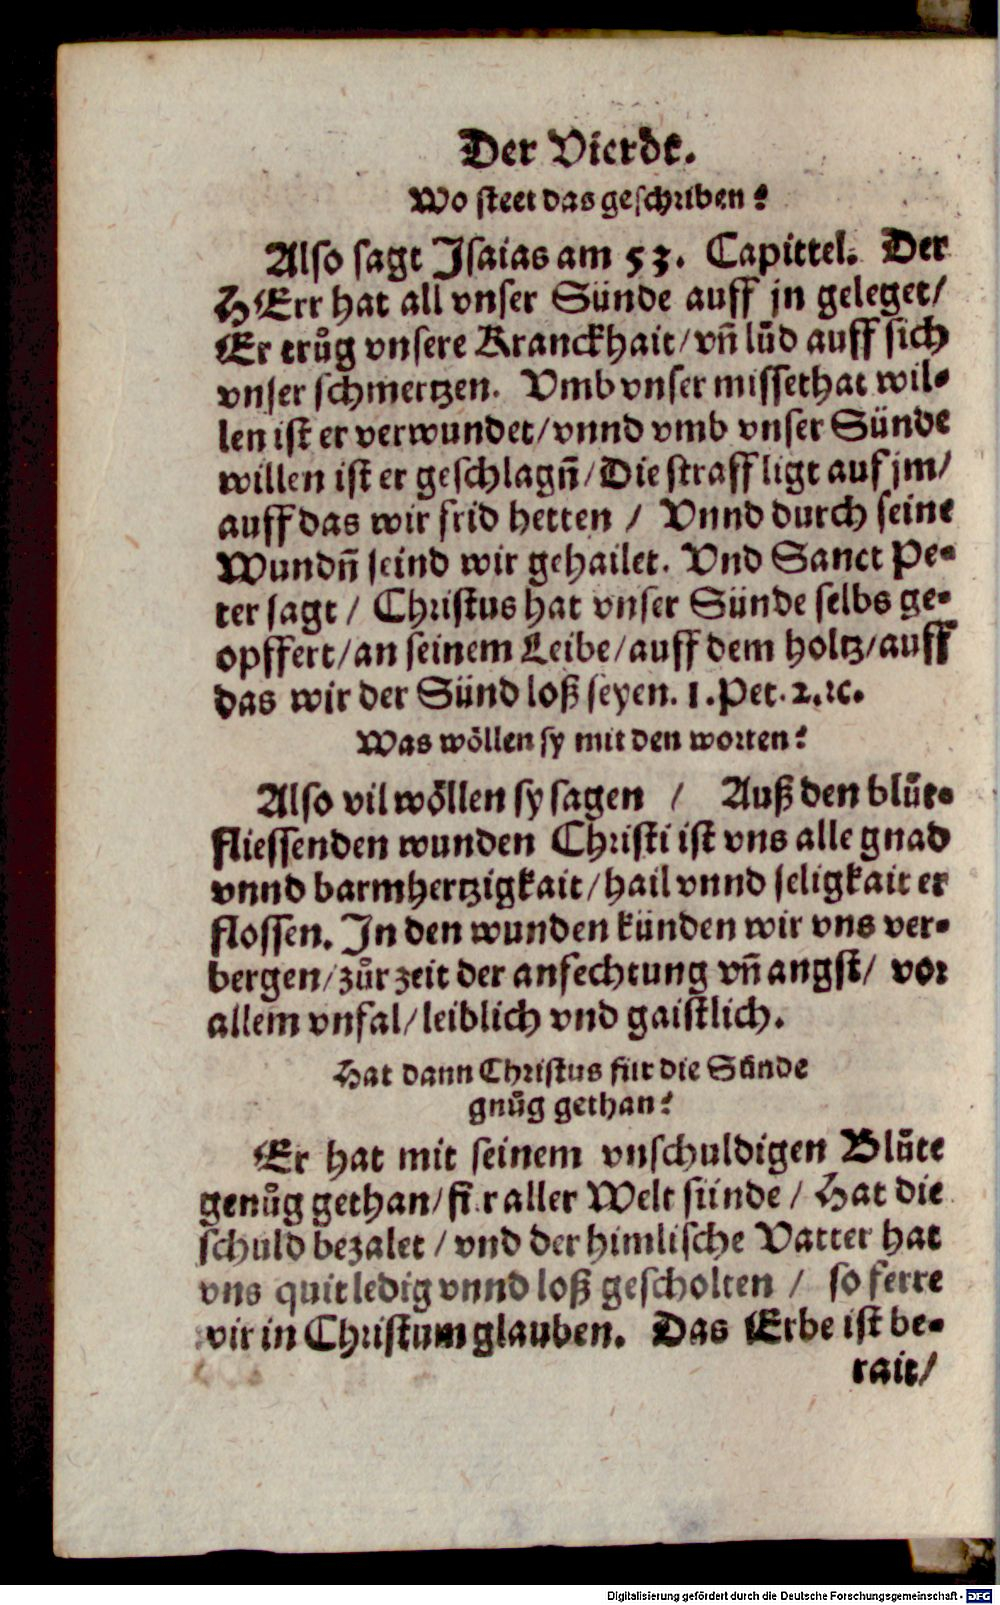 Der Vierde.
Wo steet das geschriben?
Also sagt Isaias am 53. Capittel. Der
HErr hat all vnser Sünde auff jn geleget/
Er trůg vnsere Kranckhait/ vñ lůd auff sich
vnser schmertzen. Vmb vnser missethat wil-
len ist er verwundet/ vnnd vmb vnser Sünde
willen ist er geschlagñ/ Die straff ligt auf jm/
auff das wir frid hetten / Vnnd durch seine
Wundñ seind wir gehailet. Vnd Sanct Pe-
ter sagt / Christus hat vnser Sünde selbs ge-
opffert/ an seinem Leibe/ auff dem holtz/ auff
das wir der Sünd loß seyen. 1. Pet. 2. ꝛc.
Was wöllen sy mit den worten?
Also vil wöllen sy sagen / Auß den blůt-
fliessenden wunden Christi ist vns alle gnad
vnnd barmhertzigkait/ hail vnnd seligkait er
flossen. In den wunden künden wir vns ver-
bergen/ zůr zeit der anfechtung vñ angst/ vor
allem vnfal/ leiblich vnd gaistlich.
Hat dann Christus für die Sünde
gnůg gethan?
Er hat mit seinem vnschuldigen Blůte
genůg gethan/ für aller Welt sünde / Hat die
schuld bezalet / vnd der himlische Vatter hat
vns quit ledig vnnd loß gescholten / so ferre
wir in Christum glauben. Das Erbe ist be-
rait/
Digitalisierung gefördert durch die Deutsche Forschungsgemeinschaft - DFG